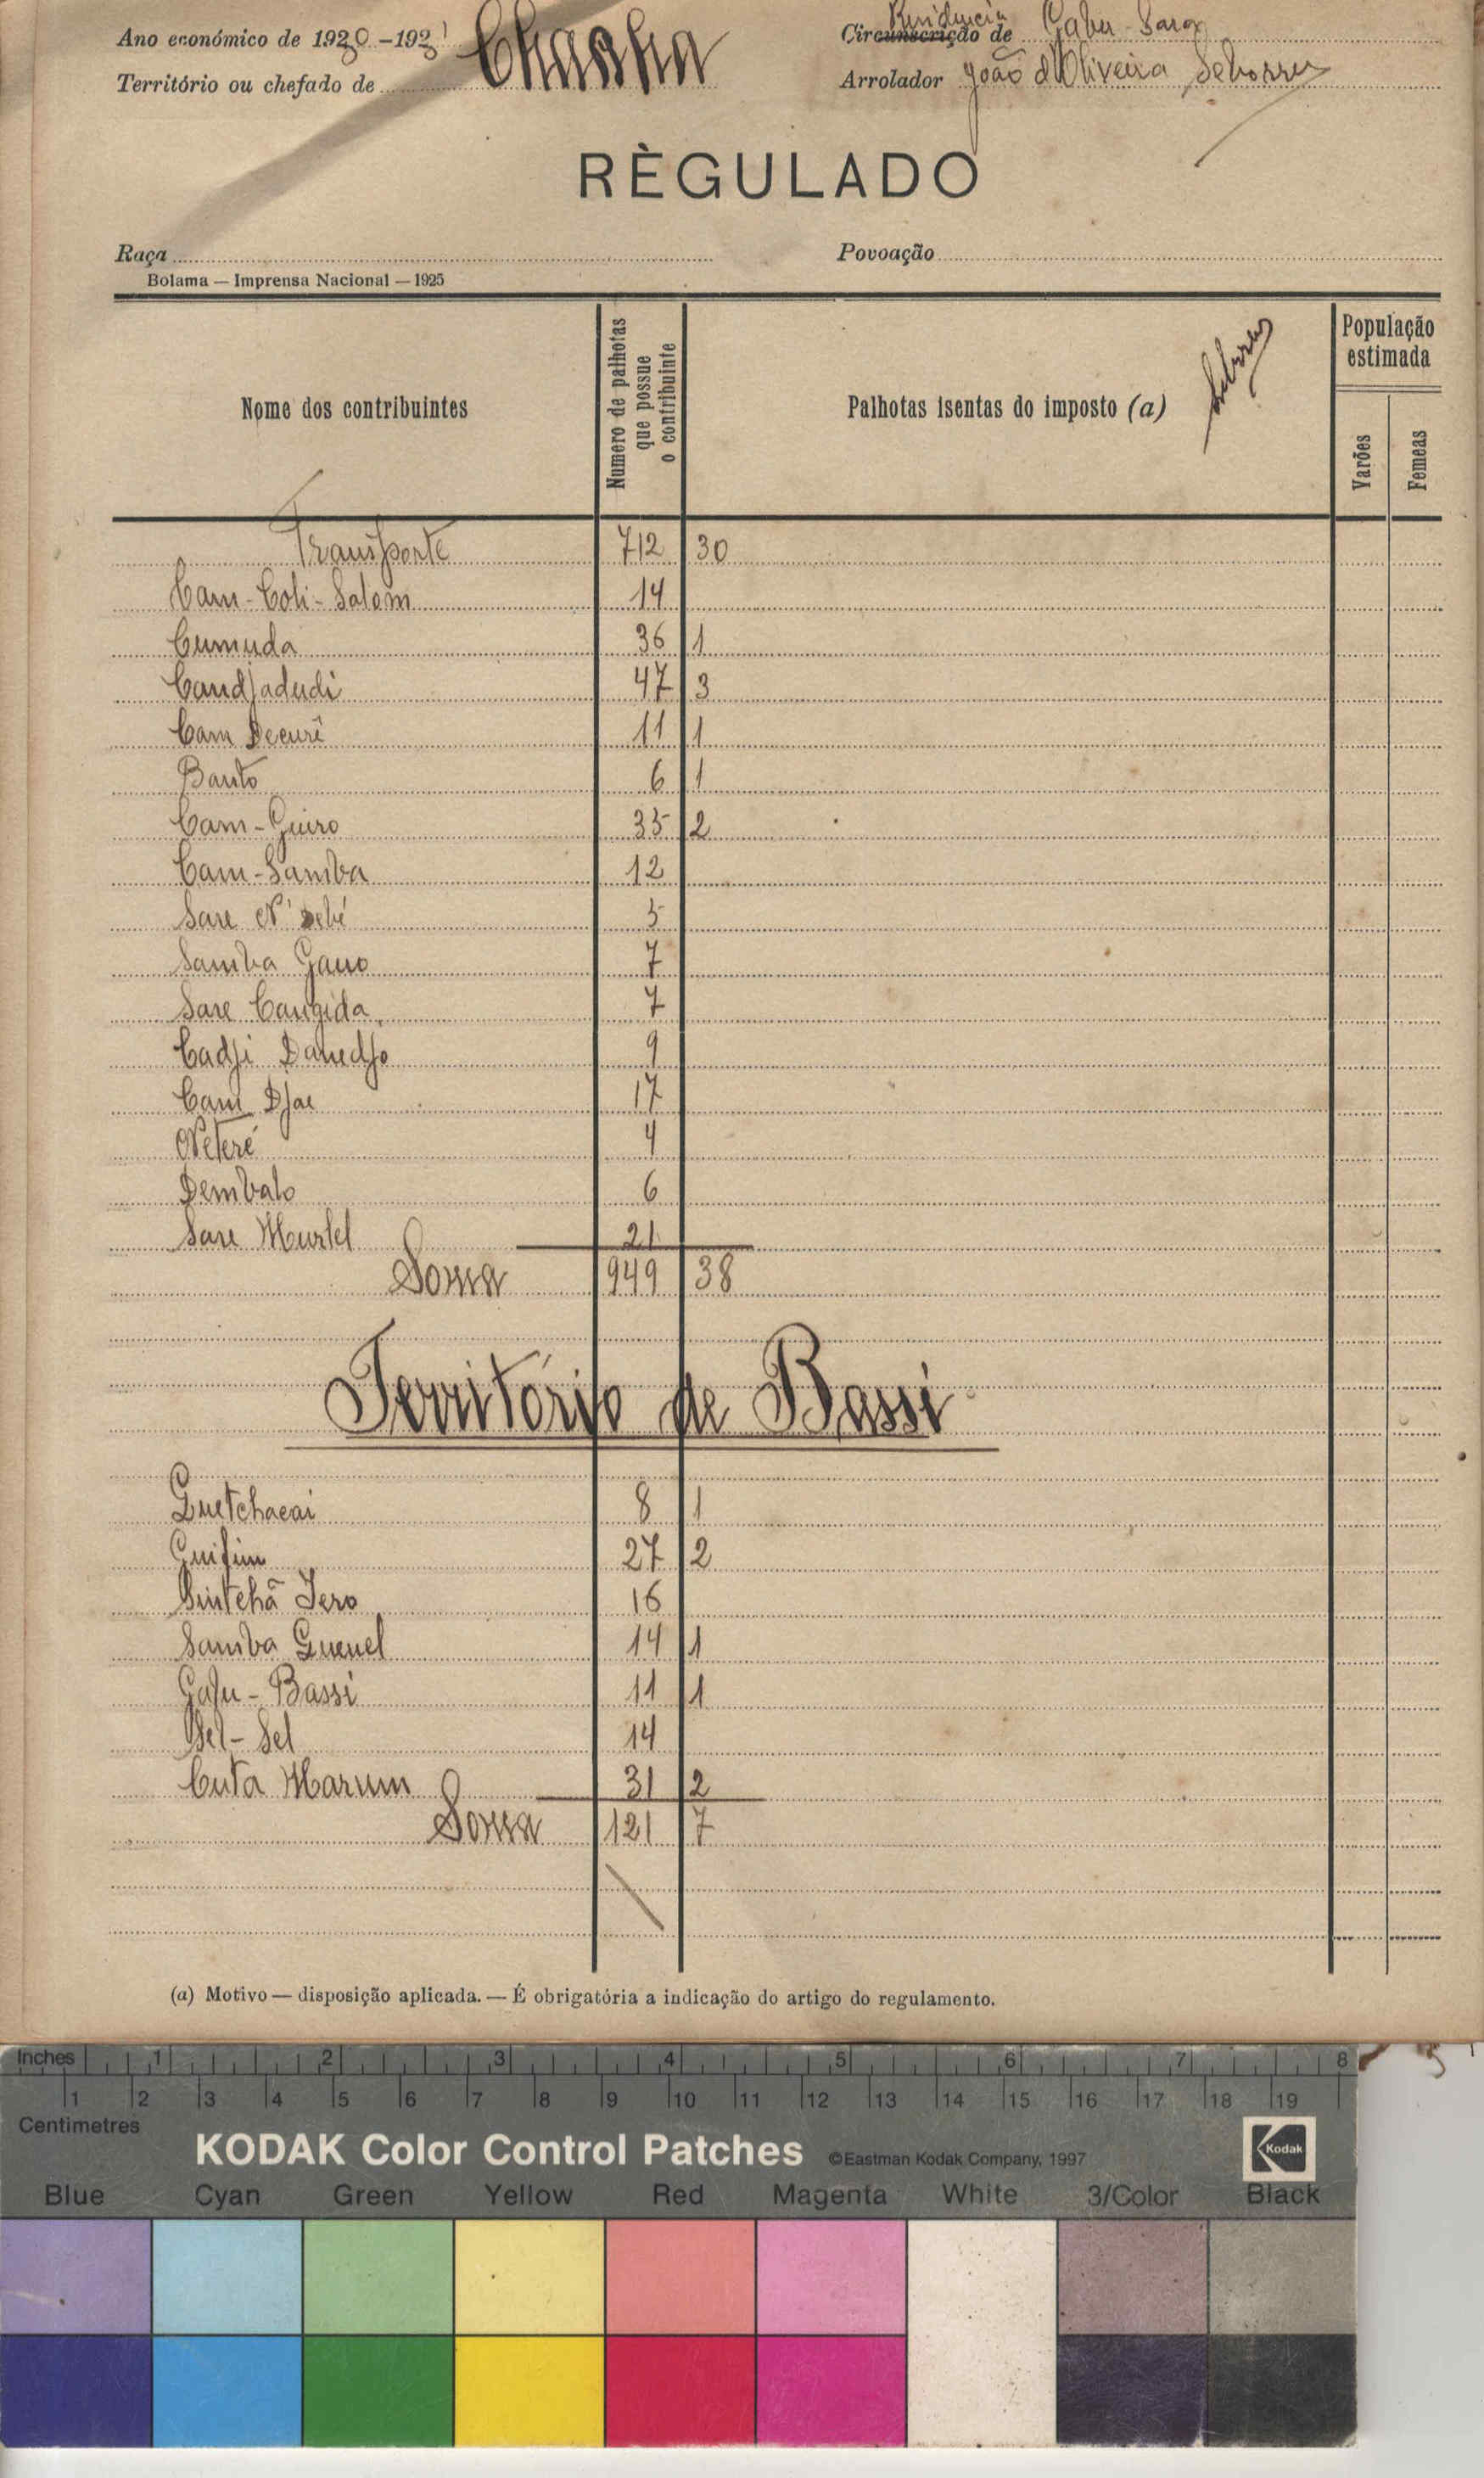 Ano económico de 1930-1931
Território ou chefado de Chanha
Residencia
Circunscrição de Gabu-Sara
Arrolador João d'Oliveira
RÈGULADO
Raça
Povoação
Bolama — Imprensa Nacional — 1925
Nome dos contribuintes
Numero de palhotas que possue o contribuinte
Palhotas isentas do imposto (a)
População estimada
Varões
Femeas
Transporte 712 30
Cam-Coli-Salom 14
Cumuda 36 1
Candjadudi 47 3
Cam Decurê 11 1
Banto 6 1
Cam-Guiro 35 2
Cam-Samba 12
Sare N'Debé 5
Samba Gano 7
Sare Cangida 7
Cadji Danedjo 9
Cam Djae 17
Neteré 4
Dembalo 6
Sare Murtel 21
Soma 949 38
Território de Bassi
Guetchacai 8 1
Guifim 27 2
Sintchã Iero 16
Samba Guenel 14 1
Gafu-Bassi 11 1
Sel-Sel 14
Cuta Marum 31 2
Soma 121 7
(a) Motivo — disposição aplicada. — É obrigatória a indicação do artigo do regulamento.
Inches 1 2 3 4 5 6 7 8
1 2 3 4 5 6 7 8 9 10 11 12 13 14 15 16 17 18 19
Centimetres
KODAK Color Control Patches ©Eastman Kodak Company, 1997 Kodak
Blue Cyan Green Yellow Red Magenta White 3/Color Black